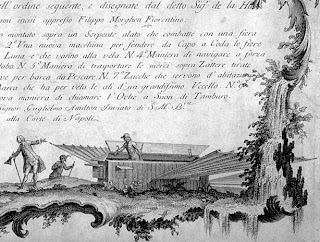 ll'ordine seguente, e disegnate dal detto Sig.r de la H
ni incisi appresso Filippo Morghen Fiorentino.
montato sopra un Serpente alato che combatte con una fiera
2.a Una nuova machina per fendere da Capo a Coda le fiere
Luna e che varino alla vela. N. 4.a Maniera di navigare a forza
oba N. 5.a Maniera di trasportare le merce sopra Zattere tirate
ve per barca da Pescare N. 7.a Zucche che servono d'abitaz
arca che ha per vela le ali d'un grandissimo Vccello. N.
ova maniera di chiamare l'Oche a Suon di Tamburo.
Signor Guglielmo Amilton Inviato di S. M. B.
alla Corte di Napoli